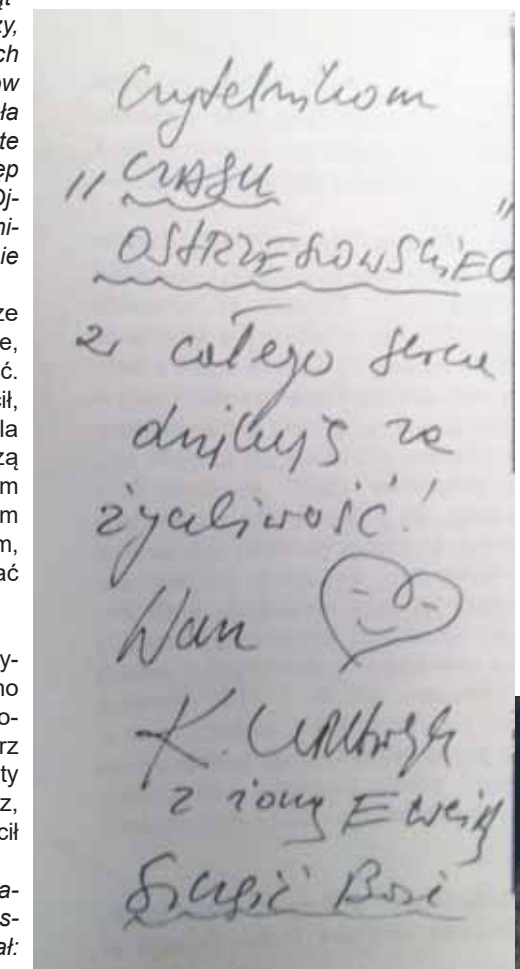 zy,
ch
ów
ła
te
ep
Oj-
ni-
nie
ze
e,
ć.
ił,
la
zą
m
m
m,
ać
y-
no
o-
rz
ty
z,
cił
a-
s-
ał:
Czytelnikom
„CZASU
OSTRZESZOWSKIEGO"
z całego serca
dziękuję za
życzliwość!
K.
z żoną
Szczęść Boże